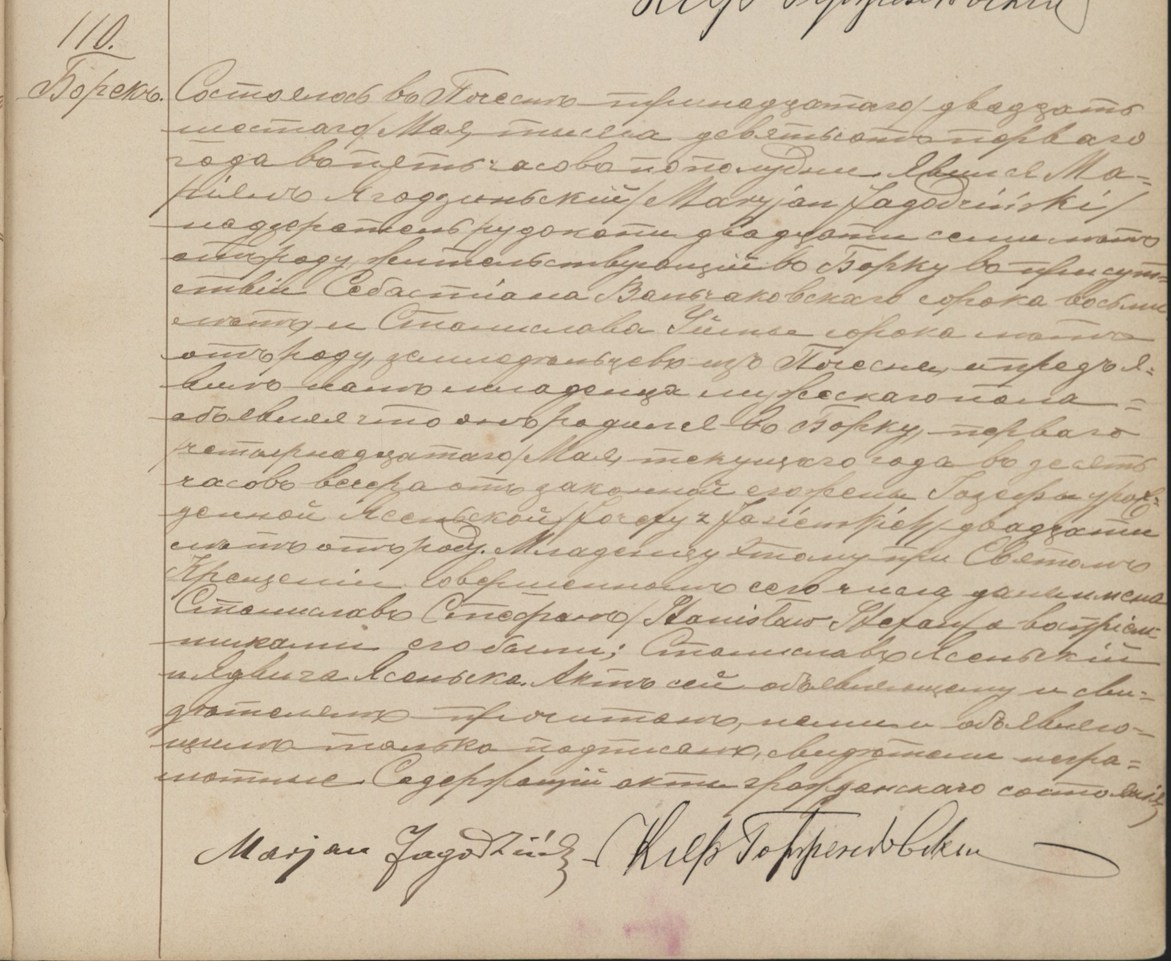 110.
Борекъ.
Состоялось въ Почеснѣ тринадцатаго/двадцать
шестаго/Мая, тысяча девятьсотъ перваго
года въ пять часовъ пополудни. Явился Ма-
ріянъ Ягодзиньскій/Maryjan Jagodziński/
надзиратель рудокопи двадцати семи лѣтъ
отъ роду, жительствующій въ Борку въ присут-
ствіи Себастіана сорока восьми
лѣтъ, и Станислава сорока лѣтъ
отъ роду, земледѣльцевъ изъ Почесни, и предъя-
вилъ намъ младенца мужескаго пола =
объявляя что онъ родился въ Борку, перваго
/четырнадцатаго/Мая, текущаго года въ десять
часовъ вечера отъ законной его жены Іозефы урож-
денной Ясеньской/Józefy z Jasieńskich/двадцати
лѣтъ отъ роду. Младенцу этому при Святомъ
Крещеніи совершенномъ сего числа даны имена
Станиславъ Стефанъ/Stanisław Stefan/а воспріем-
никами его были: Станиславъ Ясеньскій
и Ядвига Ясеньска. Актъ сей объявляющему и сви-
дѣтелямъ прочитанъ, нами и объявляю-
щимъ только подписанъ, свидѣтели негра-
мотные. Содержащій акты гражданскаго состоянія
Marjan Jagodziński